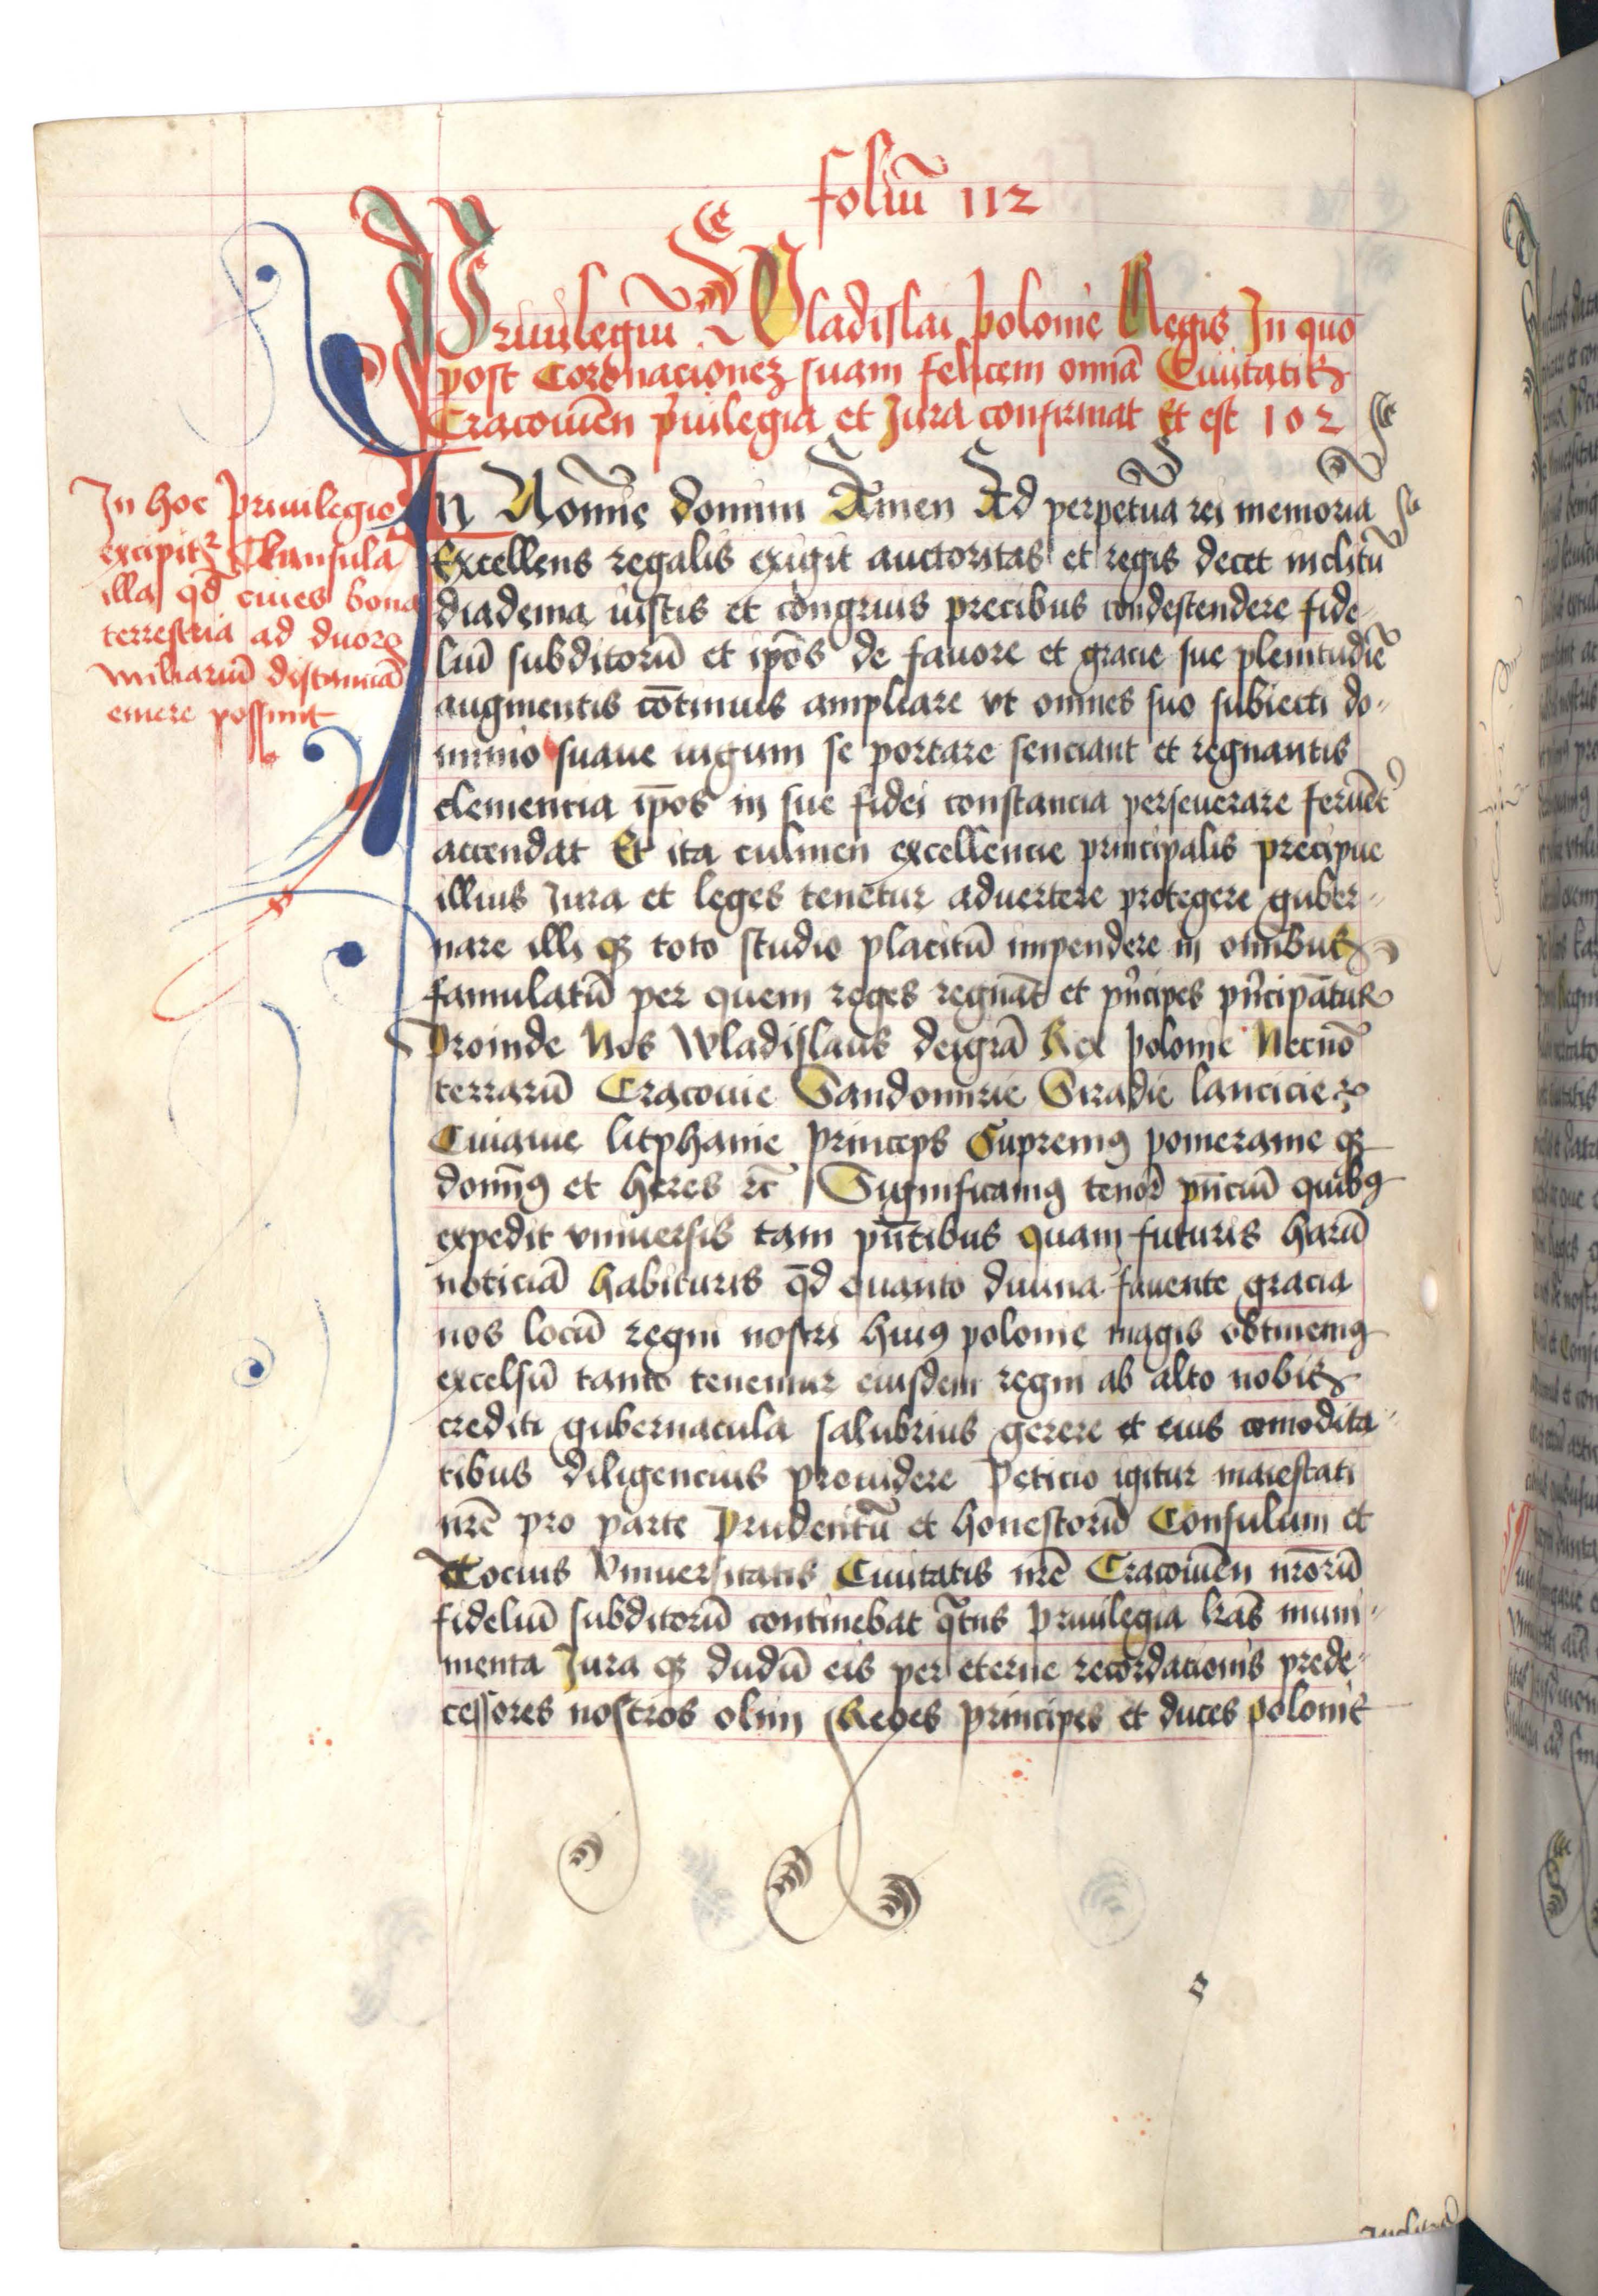 foliū 112
Priuilegiū Wladislai polonie Regis In quo
post Coronacionez suam felicem omnia Ciuitatis
Cracouien̄ p͛uilegia et Jura confirmat Et est 102
In hoc Priuilegio
excipit᷑ Clausula
illa qd̄ ciues bona
terrestria ad duorū
miliariū distanciā
emere possunt
In Nomīe domini Amen Ad perpetuā rei memoriā
Excellens regalis exigit auctoritas et regis decet inclitū
diadema iustis et congruis precibus condescendere fide-
liū subditorū et ip̄os de fauore et gracie sue plenitudīe
augmentis cōtinuis ampliare vt omnes suo subiecti do-
minio suaue iugum se portare senciant et regnantis
clemencia ip̄os in sue fidei constancia perseuerare feruēt᷑
accendat Et ita culmen excellencie principalis precipue
illius Jura et leges tenetur aduertere protegere guber-
nare illi qꝫ toto studio placitū impendere in om̄ibus
famulatū per quem reges regnāt et p͛ncipes p͛ncipāntur
Proinde Nos Wladislaus deigrā Rex polonie Necnō
terrarū Cracouie Sandomirie Siradie lancicie
Cuiauie litphanie Princeps Supremꝰ pomeranie qꝫ
domīnꝰ et heres ⁊c̄ Significamꝰ tenore pn̄ciū quibꝰ
expedit vniuersis tam pn̄tibus quam futuris harū
noticiā habituris qd̄ quanto diuina fauente gracia
nos locū regni nostri huiꝰ polonie magis obtinemꝰ
excelsū tanto tenemur eiusdem regni ab alto nobis
crediti gubernacula salubrius gerere et eius comodita-
tibus diligencius prouidere Peticio igitur maiestati
nr̄e pro parte Prudentū et honestorū Consulum et
Tocius Vniuersitatis Ciuitatis nr̄e Cracouien̄ nr̄orū
fideliū subditorū continebat qt̄nus Priuilegia lr̄as muni-
menta Jura qꝫ dudū eis per eterne recordacionis prede-
cessores nostros olim Reges principes et duces polonie